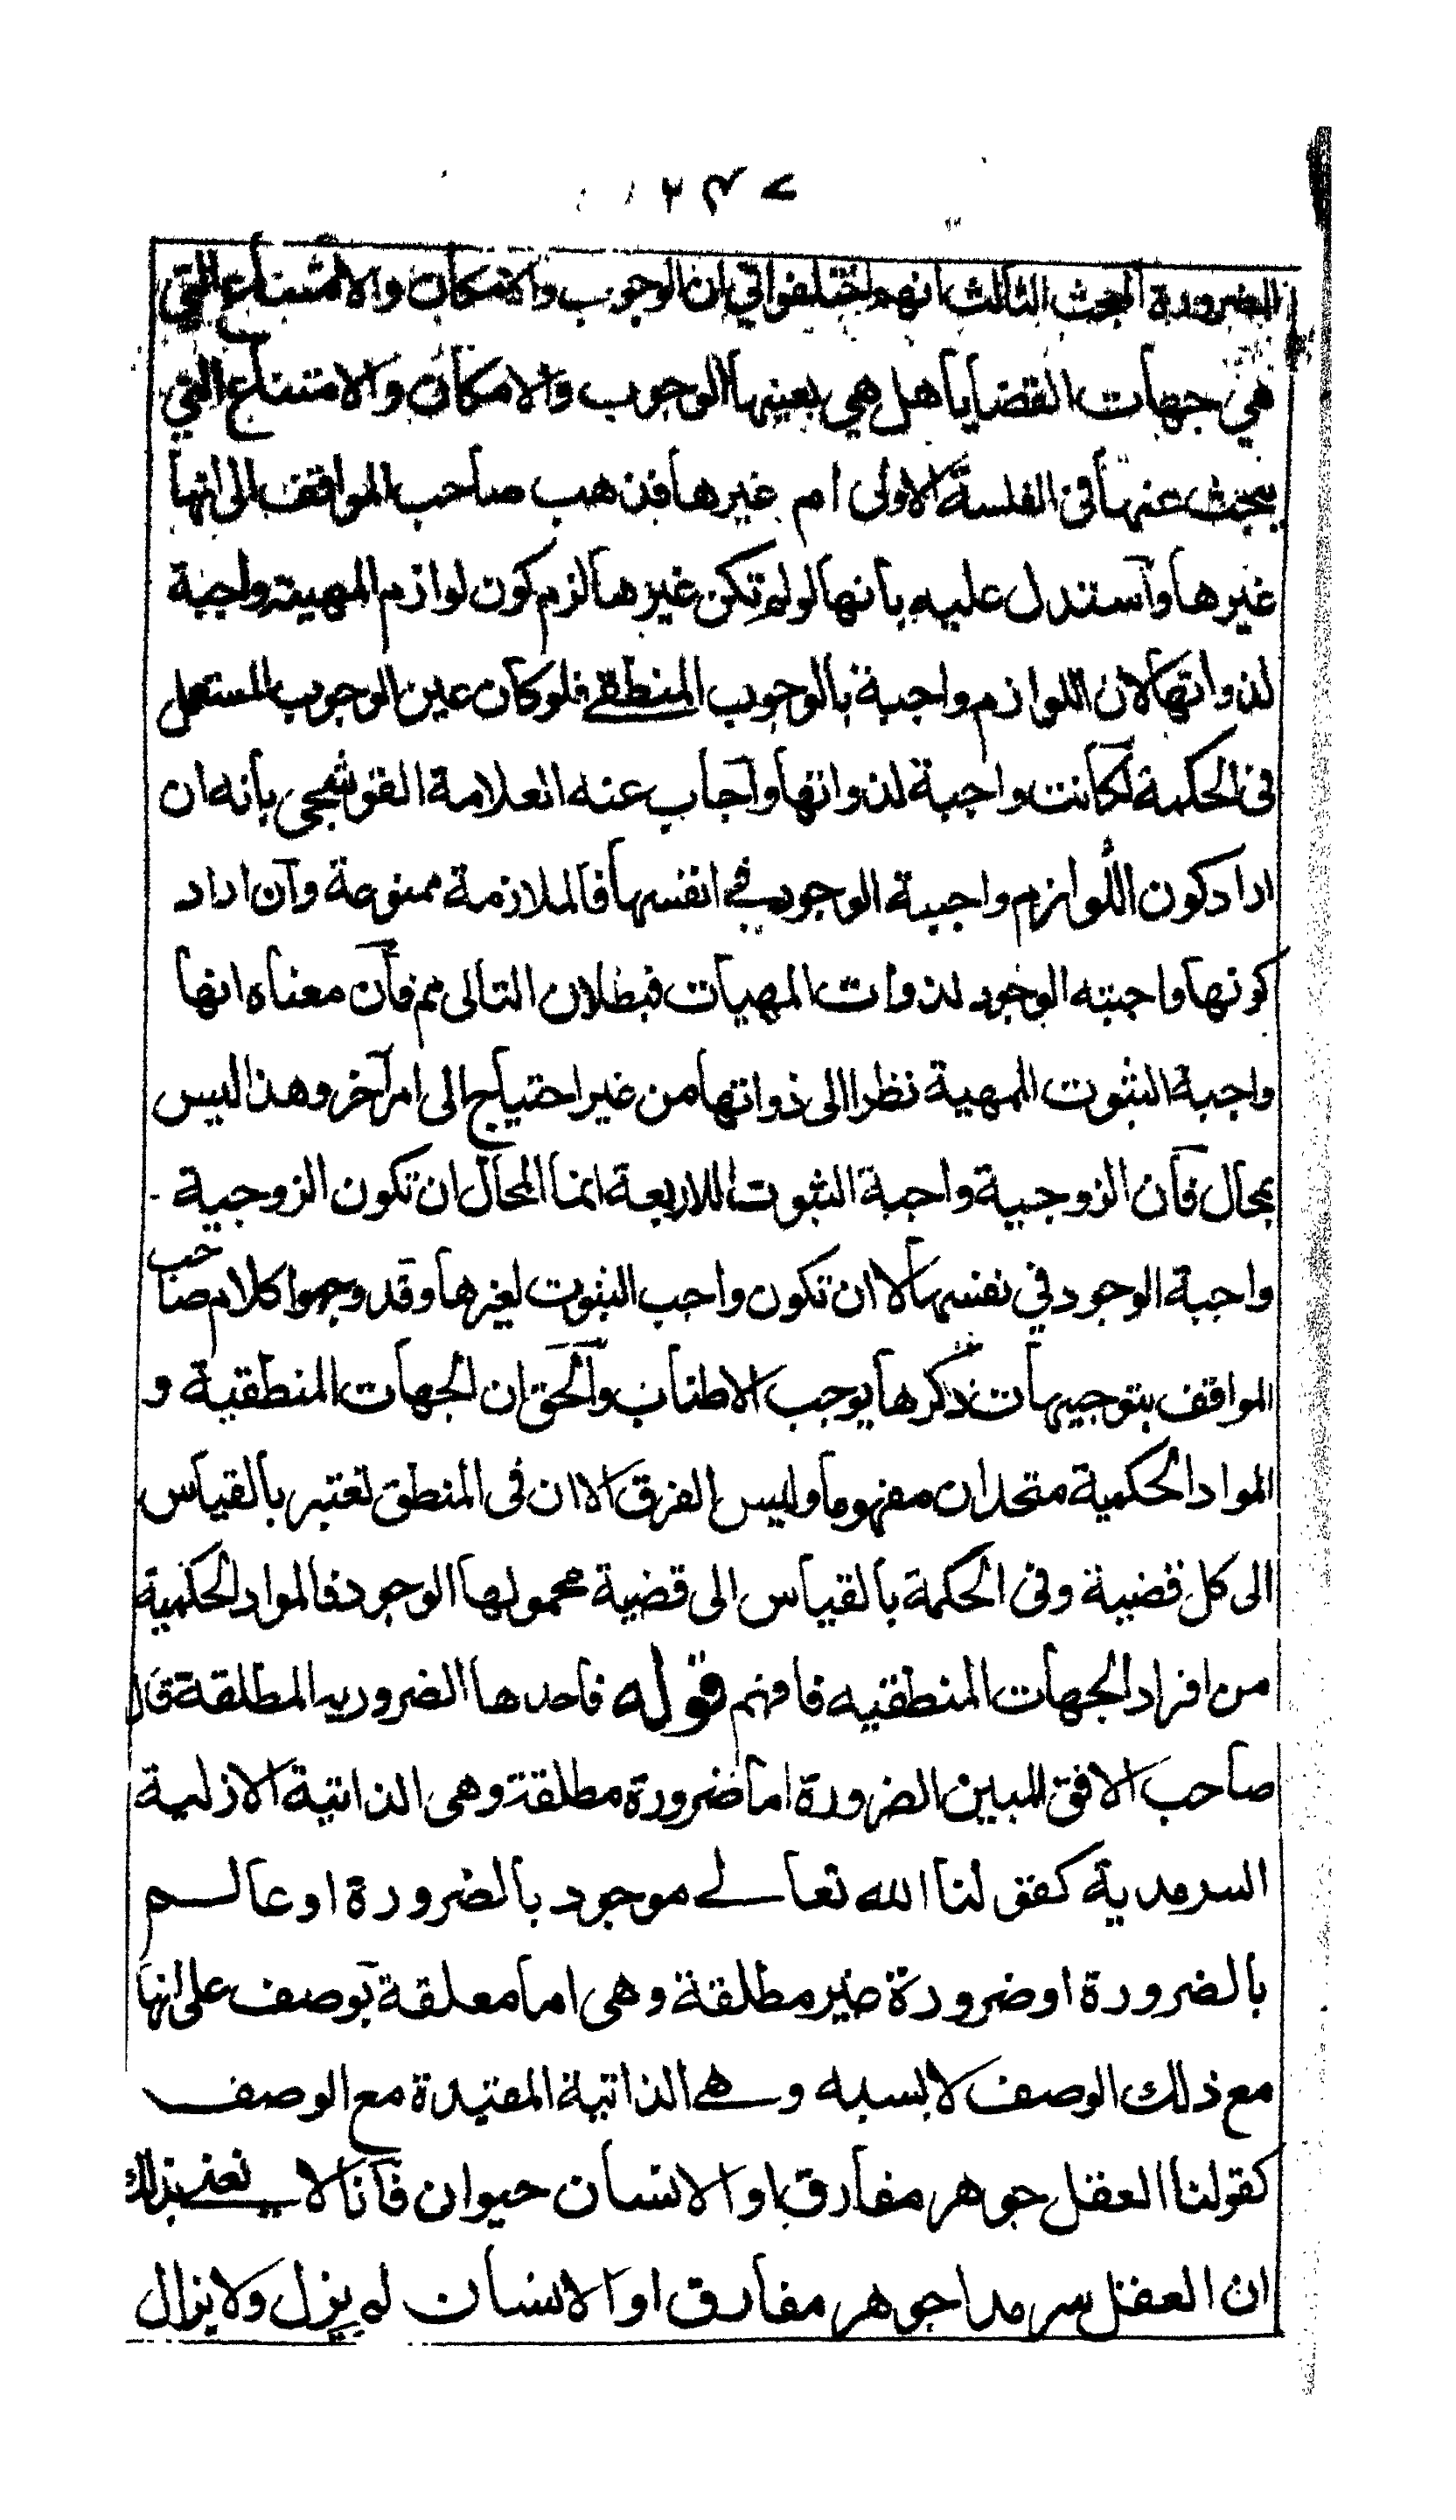 ۲۴۷
الضرورة البحث الثالث انهم اختلفوا في ان الوجوب والامكان والامتناع التي
هي جهات القضايا هل هي بعينها الوجوب والامكان والامتناع التي
يبحث عنها فى الفلسفة الاولى ام غيرها فذهب صاحب المواقف الى انها
غيرها واستدل عليه بانها لو لم تكن غيرها لزم كون لوازم المهية واجبة
لذواتها لان اللوازم واجبة بالوجوب المنطقے فلو كان عين الوجوب المستعمل
فى الحكمة لكانت واجبة لذواتها واجاب عنه العلامة القوشجى بانه ان
اراد كون اللوازم واجبة الوجود في انفسها فالملازمة ممنوعة وان اراد
كونها واجبته الوجود لذوات المهيات فبطلان التالى مم فان معناه انها
واجبة الثبوت للمهية نظرا الى ذواتها من غير احتياج الى امر آخر وهذا ليس
بمحال فان الزوجية واجبة الثبوت للاربعة انما المحال ان تكون الزوجية
واجبة الوجود في نفسها لا ان تكون واجب الثبوت لغيرها وقد وجهوا كلام صاحب
المواقف بتوجيهات ذكرها يوجب الاطناب والحق ان الجهات المنطقية و
المواد الحكمية متحدان مفهوما وليس الفرق الا ان فى المنطق تعتبر بالقياس
الى كل قضية وفى الحكمة بالقياس الى قضية محمولها الوجود فالمواد الحكمية
من افراد الجهات المنطقيه فافهم قوله فاحدها الضروريه المطلقة قال
صاحب الافق المبين الضرورة اما ضرورة مطلقة وهى الذاتية الازلية
السرمدية كقولنا الله تعالے موجود بالضرورة او عالم
بالضرورة او ضرورة غير مطلقة وهى اما معلقة بوصف على انها
مع ذلك الوصف لا بسببه وهے الذاتية المقيدة مع الوصف
كقولنا العقل جوهر مفارق او الانسان حيوان فانا لا نعنے بذلك
ان العقل سرمدا جوهر مفارق او الانسان لم يزل ولا يزال